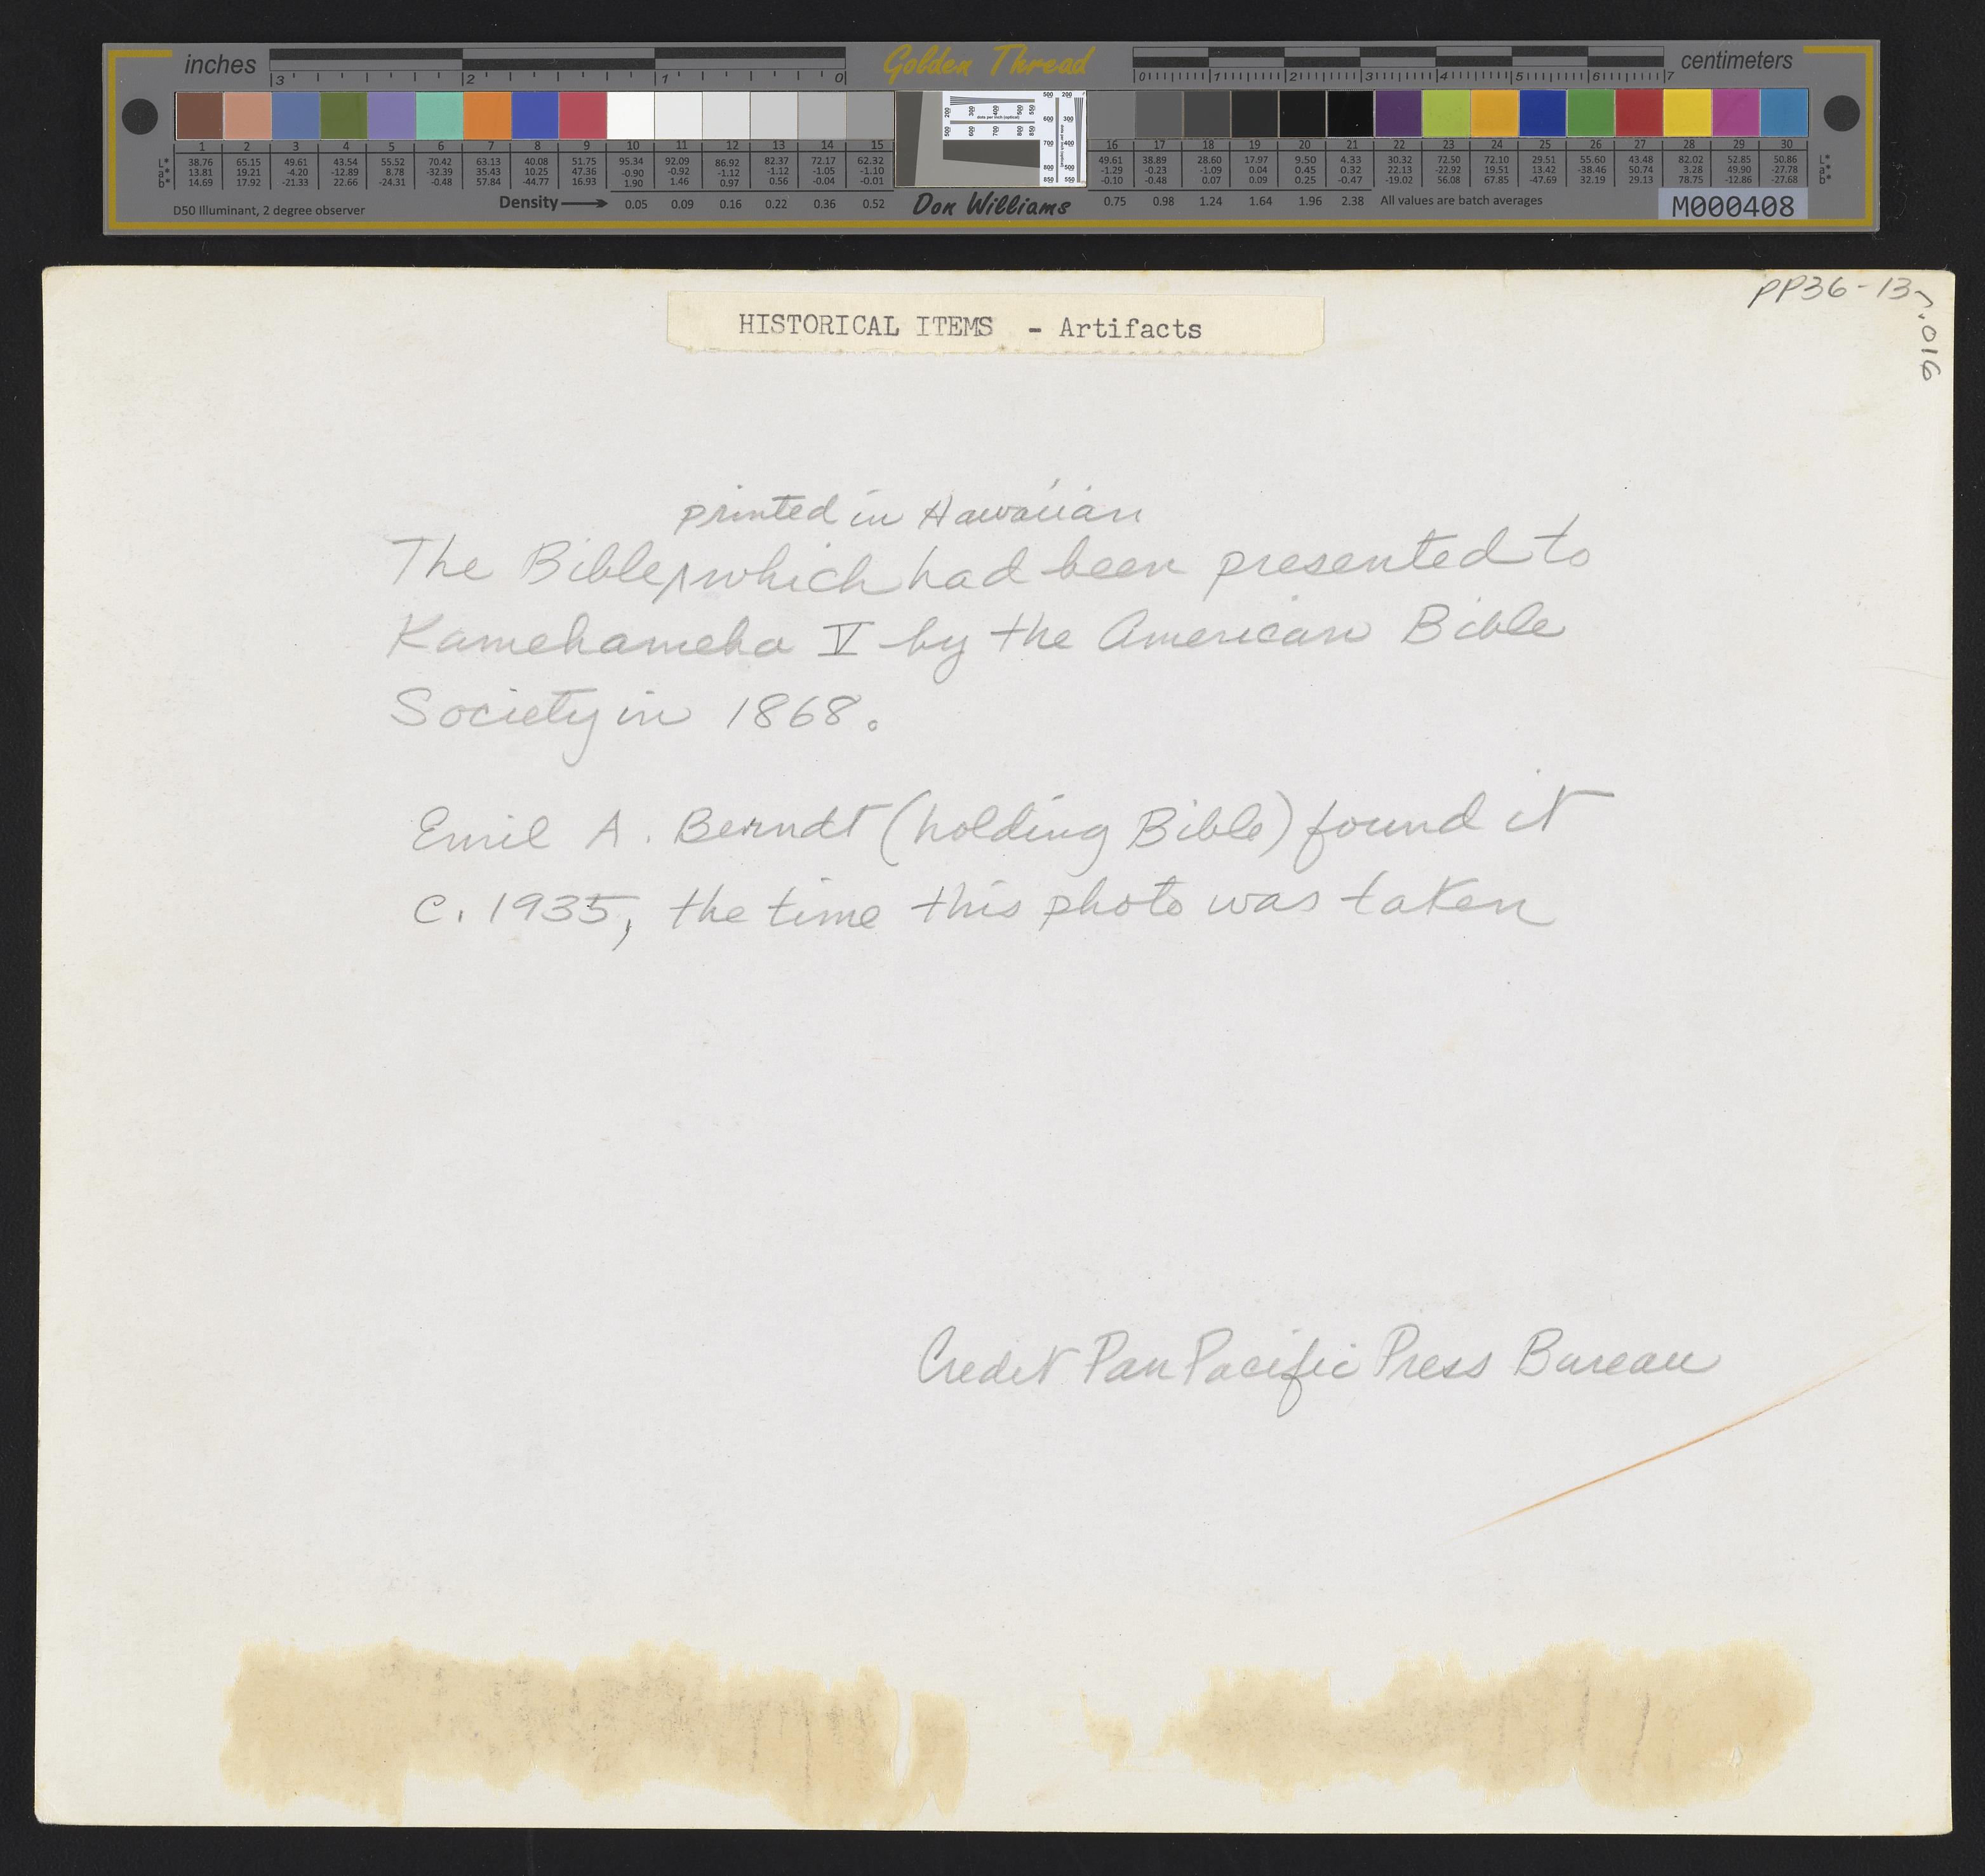 inches 3 2 1 0 Golden Thread 0 1 2 3 4 5 6 7 centimeters
1 2 3 4 5 6 7 8 9 10 11 12 13 14 15 16 17 18 19 20 21 22 23 24 25 26 27 28 29 30
L* 38.76 65.15 49.61 43.54 55.52 70.42 63.13 40.08 51.75 95.34 92.09 86.92 82.37 72.17 62.32 49.61 38.89 28.60 17.97 9.50 4.33 30.32 72.50 72.10 29.51 55.60 43.48 82.02 52.85 50.86 L*
a* 13.81 19.21 -4.20 -12.89 8.78 -32.39 35.43 10.25 47.36 -0.90 -0.92 -1.12 -1.12 -1.05 -1.10 -1.29 -0.23 -1.09 0.04 0.45 0.32 22.13 -22.92 19.51 13.42 -38.46 50.74 3.28 49.90 -27.78 a*
b* 14.69 17.92 -21.33 22.66 -24.31 -0.48 57.84 -44.77 16.93 1.90 1.46 0.97 0.56 -0.04 -0.01 -0.10 -0.48 0.07 0.09 0.25 -0.47 -19.02 56.08 67.85 -47.69 32.19 29.13 78.75 -12.86 -27.68 b*
D50 Illuminant, 2 degree observer Density 0.05 0.09 0.16 0.22 0.36 0.52 Don Williams 0.75 0.98 1.24 1.64 1.96 2.38 All values are batch averages M000408
HISTORICAL ITEMS - Artifacts
.016
printed in Hawaiian
The Bible, which had been presented to
Kamehameha V by the American Bible
Society in 1868.
Emil A. Berndt (holding Bible) found it
c. 1935, the time this photo was taken
Credit Pan Pacific Press Bureau